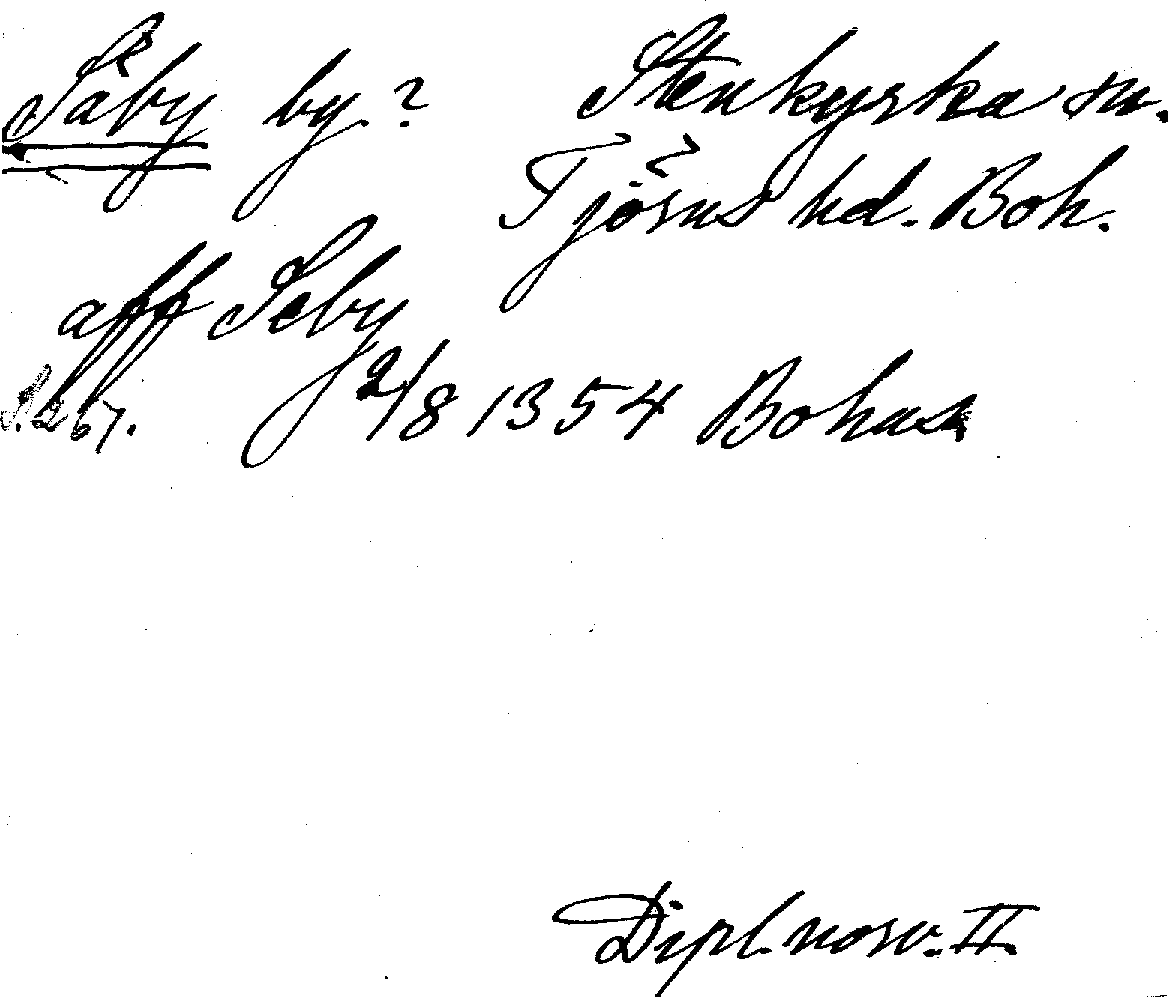 Säby by? Stenkyrka sn.
Tjörns hd. Boh.
aff Seby
S. 267. 2/8 1354 Bohus
Dipl. norv. II.